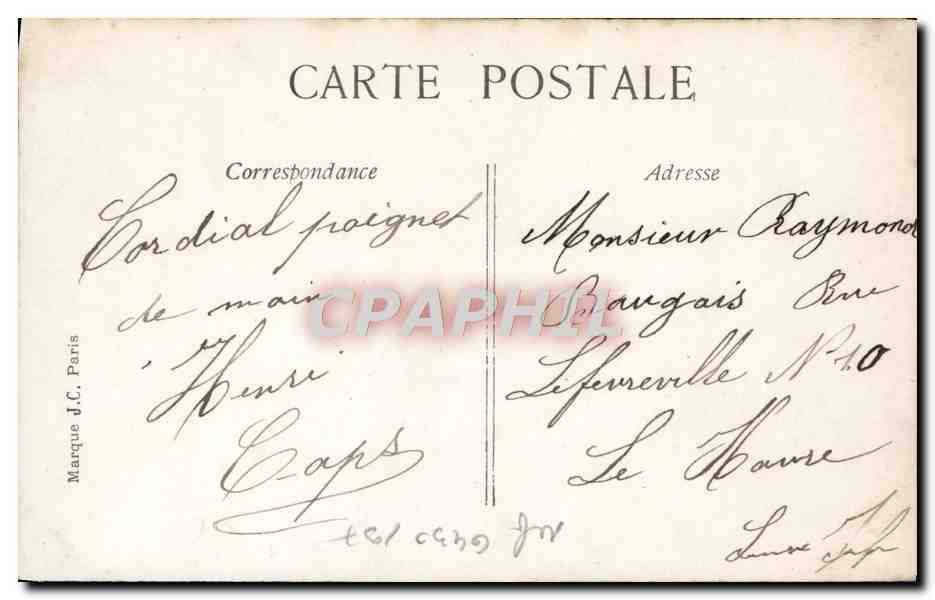 CARTE POSTALE
Correspondance
Cordial poignet
de main
Henri
Caps
Adresse
Monsieur Raymond
Baugais Rue
Lefevreville N 10
Le Havre
Marque J.C. Paris
CPAPHIL